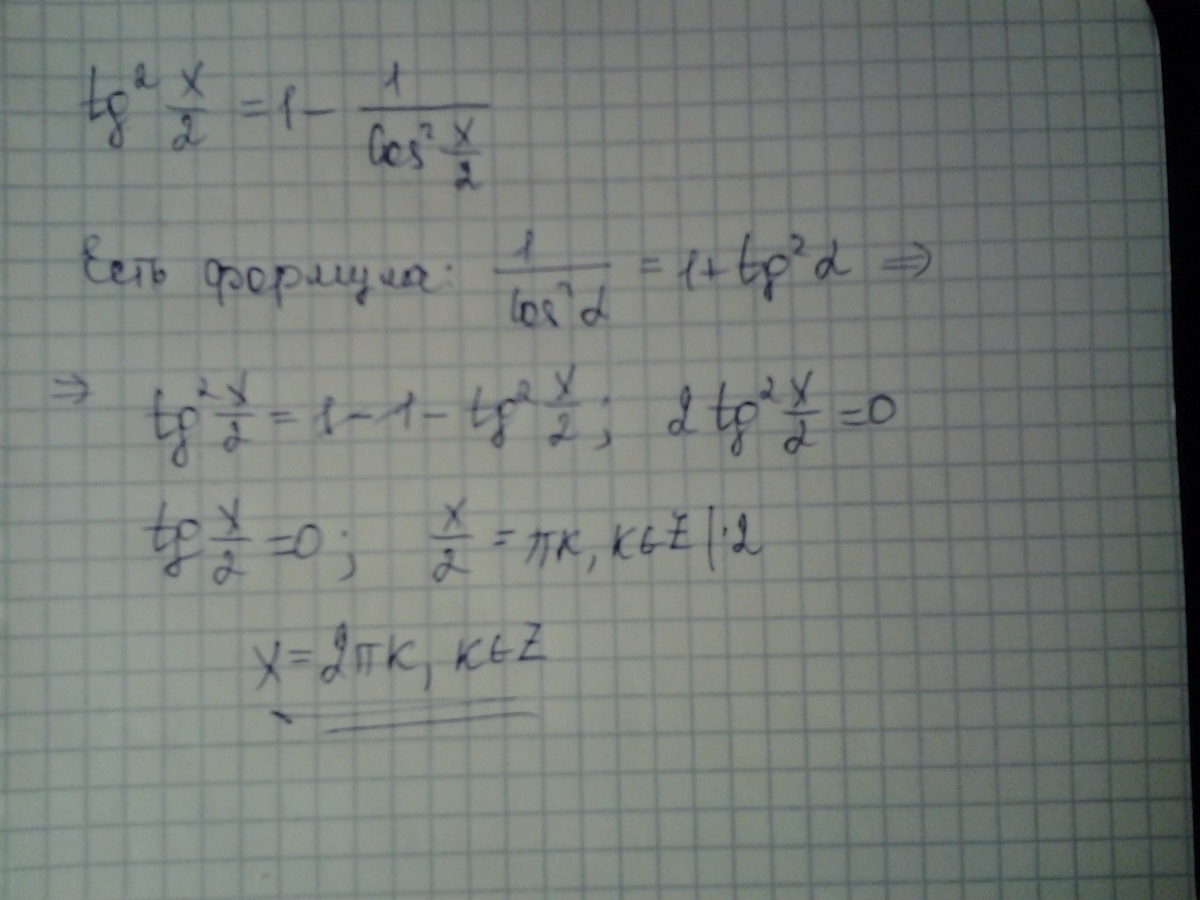 tg² x/2 = 1 - 1/cos² x/2
Есть формула: 1/cos² α = 1 + tg² α ⇒
⇒ tg² x/2 = 1 - 1 - tg² x/2; 2 tg² x/2 = 0
tg x/2 = 0; x/2 = πк, к∈Z | · 2
x = 2πк, к∈Z